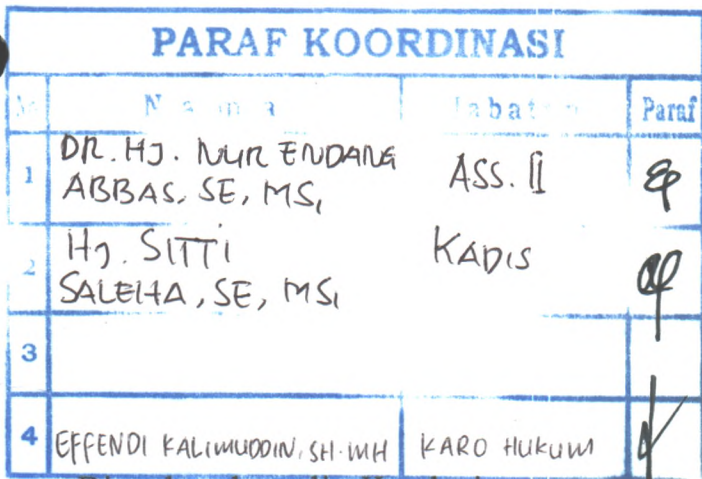 PARAF KOORDINASI
No Nama Jabatan Paraf
1 DR. HJ. NUR ENDANG
ABBAS, SE, MSi ASS. II
2 Hj. SITTI KADIS
SALEHA, SE, MSi
3
4 EFFENDI KALIMUDDIN, SH. MH KARO HUKUM